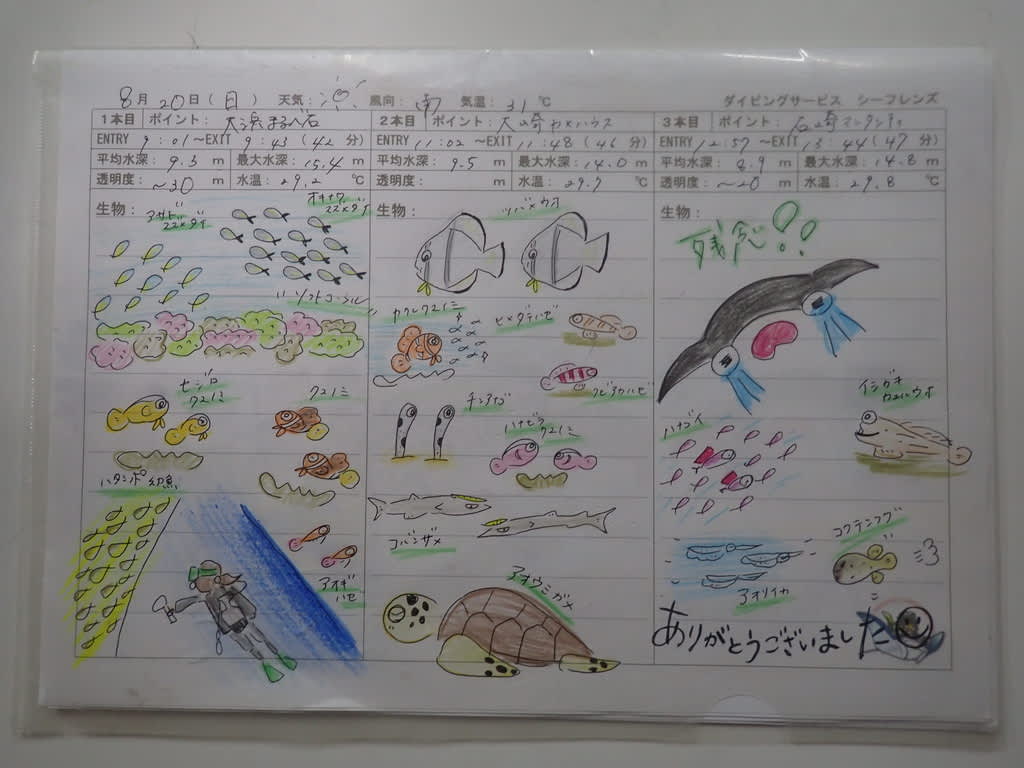 8月20日(日) 天気: 風向: 南 気温: 31℃
ダイビングサービス シーフレンズ
1本目 ポイント:
ENTRY 9:01～EXIT 9:43(42分)
平均水深: 9.3m 最大水深: 15.4m
透明度: ～30m 水温: 29.2℃
生物:
アサドスズメダイ
オキナワスズメダイ
ソフトコーラル
セジロクマノミ
クマノミ
ハタンポ幼魚
アオギハゼ
2本目 ポイント: 大崎カメハウス
ENTRY 11:02～EXIT 11:48(46分)
平均水深: 9.5m 最大水深: 14.0m
透明度: m 水温: 29.7℃
生物:
ツバメウオ
カクレクマノミ
ヒメダテハゼ
クビアカハゼ
チンアナゴ
ハナビラクマノミ
コバンザメ
アオウミガメ
3本目 ポイント: 石崎マンタシティ
ENTRY 12:57～EXIT 13:44(47分)
平均水深: 8.9m 最大水深: 14.8m
透明度: ～20m 水温: 29.8℃
生物:
残念!!
イシガキカエルウオ
ハナゴイ
コクテンフグ
アオリイカ
ありがとうございました